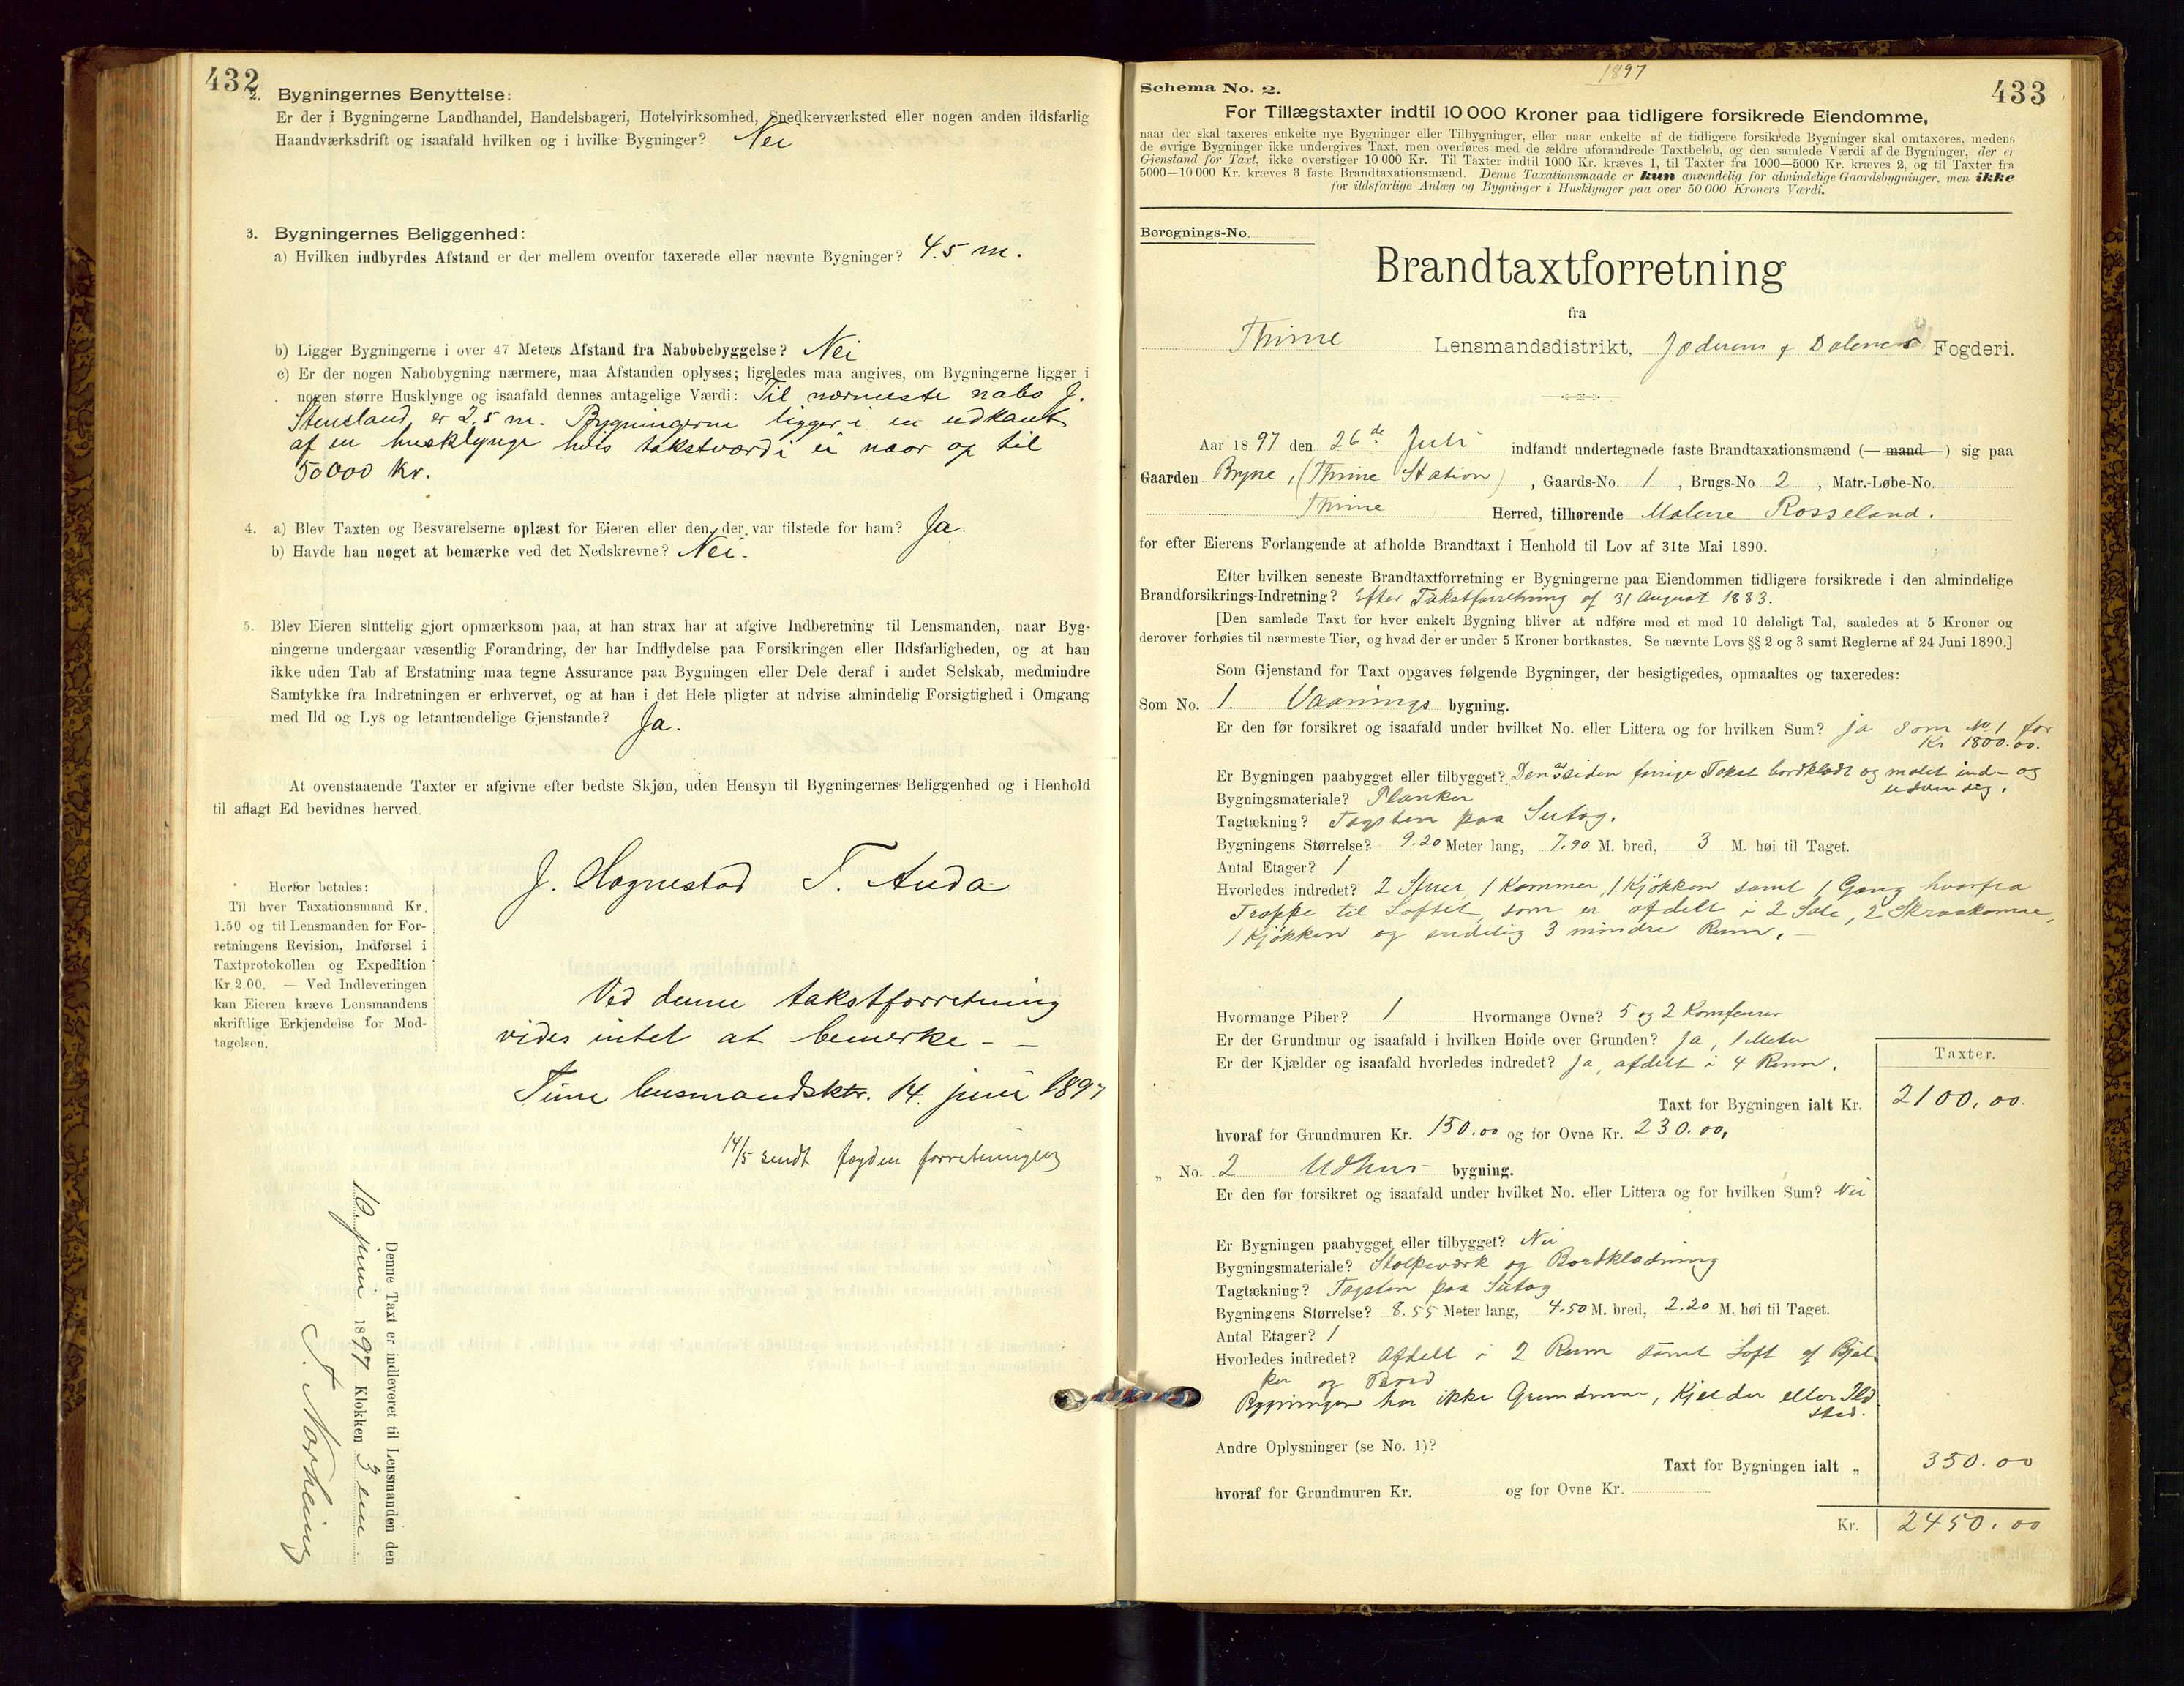 432
2. Bygningernes Benyttelse:
Er der i Bygningerne Landhandel, Handelsbageri, Hotelvirksomhed, Snedkerværksted eller nogen anden ildsfarlig
Haandværksdrift og isaafald hvilken og i hvilke Bygninger? Nei
3. Bygningernes Beliggenhed:
a) Hvilken indbyrdes Afstand er der mellem ovenfor taxerede eller nævnte Bygninger? 4.5 m.
b) Ligger Bygningerne i over 47 Meters Afstand fra Nabobebyggelse? Nei
c) Er der nogen Nabobygning nærmere, maa Afstanden oplyses; ligeledes maa angives, om Bygningerne ligger i
nogen større Husklynge og isaafald dennes antagelige Værdi: Til nærmeste nabo J.
Stensland er 2,5 m. Bygningerne ligger i en udkant
af en husklynge hvis takstværdi ei naar op til
50000 kr.
4. a) Blev Taxten og Besvarelserne oplæst for Eieren eller den, der var tilstede for ham? Ja.
b) Havde han noget at bemærke ved det Nedskrevne? Nei.
5. Blev Eieren sluttelig gjort opmærksom paa, at han strax har at afgive Indberetning til Lensmanden, naar Byg-
ningerne undergaar væsentlig Forandring, der har Indflydelse paa Forsikringen eller Ildsfarligheden, og at han
ikke uden Tab af Erstatning maa tegne Assurance paa Bygningen eller Dele deraf i andet Selskab, medmindre
Samtykke fra Indretningen er erhvervet, og at han i det Hele pligter at udvise almindelig Forsigtighed i Omgang
med Ild og Lys og letantændelige Gjenstande? Ja.
At ovenstaaende Taxter er afgivne efter bedste Skjøn, uden Hensyn til Bygningernes Beliggenhed og i Henhold
til aflagt Ed bevidnes herved.
J. Hognestad T. Auda
Herfor betales:
Til hver Taxationsmand Kr.
1.50 og til Lensmanden for For-
retningens Revision, Indførsel i
Taxtprotokollen og Expedition
Kr. 2.00. — Ved Indleveringen
kan Eieren kræve Lensmandens
skriftlige Erkjendelse for Mod-
tagelsen.
Ved denne takstforretning
vides intet at bemerke - —
Time lensmandsktr. 14. juni 1897
14/5 sendt fogden forretningen
Denne Taxt er indleveret til Lensmanden den
10 juni 1897 Klokken 3 em
433
1897
Schema No. 2.
For Tillægstaxter indtil 10 000 Kroner paa tidligere forsikrede Eiendomme,
naar der skal taxeres enkelte nye Bygninger eller Tilbygninger, eller naar enkelte af de tidligere forsikrede Bygninger skal omtaxeres, medens
de øvrige Bygninger ikke undergives Taxt, men overføres med de ældre uforandrede Taxtbeløb, og den samlede Værdi af de Bygninger, der er
Gjenstand for Taxt, ikke overstiger 10 000 Kr. Til Taxter indtil 1000 Kr. kræves 1, til Taxter fra 1000—5000 Kr. kræves 2, og til Taxter fra
5000—10 000 Kr. kræves 3 faste Brandtaxationsmænd. Denne Taxationsmaade er kun anvendelig for almindelige Gaardsbygninger, men ikke
for ildsfarlige Anlæg og Bygninger i Husklynger paa over 50 000 Kroners Værdi.
Beregnings-No.
Brandtaxtforretning
fra
Thime Lensmandsdistrikt, Jæderens & Dalernes Fogderi.
Aar 1897 den 26de Juli indfandt undertegnede faste Brandtaxationsmænd (—mand—) sig paa
Gaarden Bryne, (Thime Station), Gaards-No. 1, Brugs-No. 2, Matr.-Løbe-No.
Thime Herred, tilhørende Malene Rosseland.
for efter Eierens Forlangende at afholde Brandtaxt i Henhold til Lov af 31te Mai 1890.
Efter hvilken seneste Brandtaxtforretning er Bygningerne paa Eiendommen tidligere forsikrede i den almindelige
Brandforsikrings-Indretning? Efter Takstforretning af 31 August 1883.
[Den samlede Taxt for hver enkelt Bygning bliver at udføre med et med 10 deleligt Tal, saaledes at 5 Kroner og
derover forhøies til nærmeste Tier, og hvad der er under 5 Kroner bortkastes. Se nævnte Lovs §§ 2 og 3 samt Reglerne af 24 Juni 1890.]
Som Gjenstand for Taxt opgaves følgende Bygninger, der besigtigedes, opmaaltes og taxeredes:
Som No. 1. Vaanings bygning.
Er den før forsikret og isaafald under hvilket No. eller Littera og for hvilken Sum? Ja som No 1 for
Kr 1800.00.
Er Bygningen paabygget eller tilbygget? Den er siden forrige Takst bordklædt og malet ind- og
udvendig.
Bygningsmateriale? Planker
Tagtækning? Tagsten paa Sutag.
Bygningens Størrelse? 9.20 Meter lang, 7.90 M. bred, 3 M. høi til Taget.
Antal Etager? 1
Hvorledes indredet? 2 Stuer, 1 Kammer, 1 Kjøkken samt 1 Gang hvorfra
Trappe til Loftet, som er afdelt i 2 Sale, 2 Skraakamre,
1 Kjøkken og endelig 3 mindre Rum. –
Hvormange Piber? 1 Hvormange Ovne? 5 og 2 Komfeurer
Er der Grundmur og isaafald i hvilken Høide over Grunden? Ja, 1 Meter
Er der Kjælder og isaafald hvorledes indredet? Ja, afdelt i 4 Rum.
Taxter.
Taxt for Bygningen ialt Kr. 2100,00.
hvoraf for Grundmuren Kr. 150.00 og for Ovne Kr. 230.00,
„ No. 2 Udhus bygning.
Er den før forsikret og isaafald under hvilket No. eller Littera og for hvilken Sum? Nei
Er Bygningen paabygget eller tilbygget? Nei
Bygningsmateriale? Stolpeværk og Bordklædning
Tagtækning? Tagsten paa Sutag
Bygningens Størrelse? 8.55 Meter lang, 4.50 M. bred, 2.20 M. høi til Taget.
Antal Etager? 1
Hvorledes indredet? Afdelt i 2 Rum samt Loft af Bjel-
ker og Bord
Bygningen har ikke Grundmur, Kjelder eller Ild
sted.
Andre Oplysninger (se No. 1)?
Taxt for Bygningen ialt „ 350.00
hvoraf for Grundmuren Kr. og for Ovne Kr.
Kr. 2450.00